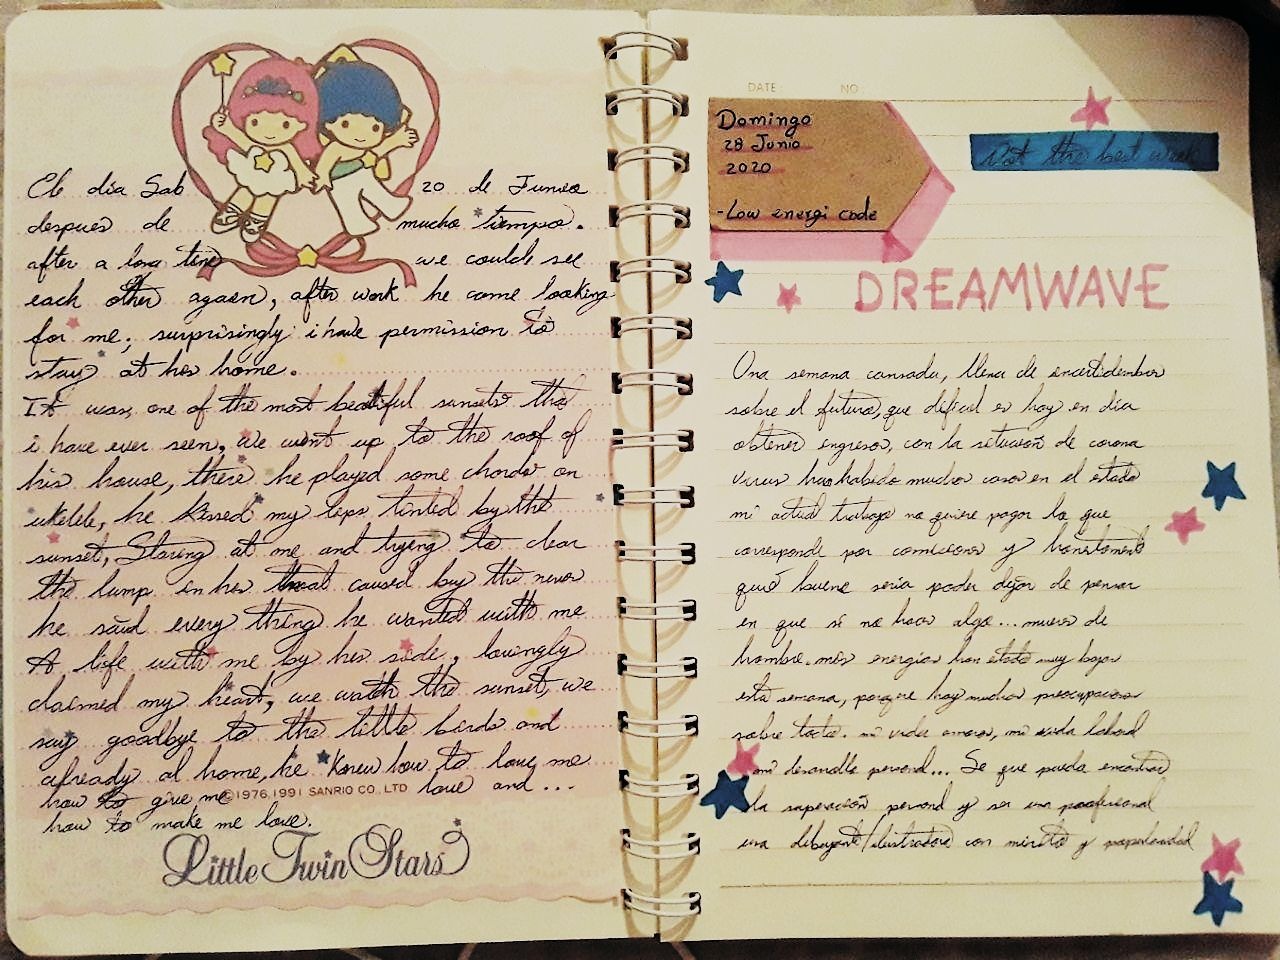 El día Sab 20 de Junio
despues de mucho tiempo.
after a long time we coulde see
each other again, after work he come looking
for me, surprisingly i have permission to
stay at his home.
It was one of the most beatiful sunsets that
i have ever seen, we went up to the roof of
his house, there he played some chords on
ukelele, he kissed my lips tinted by the
sunset, Staring at me and trying to clear
the lump in his throat caused by the nerves
he said every thing he wanted with me
A life with me by his side, lovingly
claimed my heart, we watch the sunset, we
say goodbye to the little birds and
already at home, he knew how to love me
how to give me love and ...
©1976,1991 SANRIO CO.,LTD
how to make me love.
Little Twin Stars
DATE: NO
Domingo
28 Junio
2020
-Low energi code
Not the best week
DREAMWAVE
Una semana cansada, llena de incertidumbre
sobre el futuro, que dificil es hoy en dia
obtener ingresos, con la situación de corona
virus han habido muchos casos en el estado
mi actual trabajo no quiere pagar lo que
corresponde por comisiones y
qué bueno seria poder dejar de pensar
en que si no hago algo... muero de
hambre. mis energias han estado muy bajas
esta semana, porque hay muchas preocupaciones
sobre todo. mi vida amorosa, mi vida laboral
mi desarrollo personal... Se que puedo encontrar
la superación personal y ser una profesional
una dibujante/ilustradora con mérito y popularidad